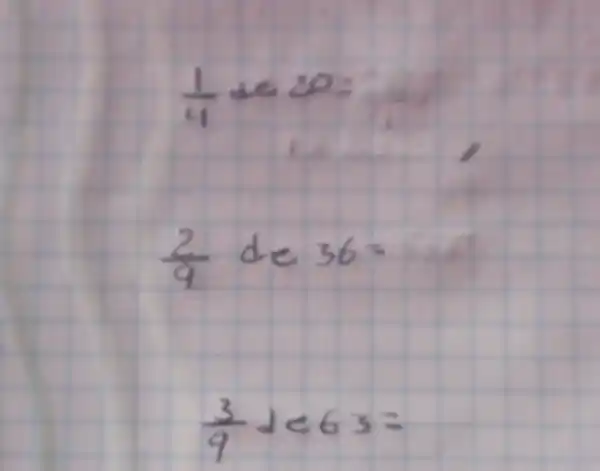 1/4 de 20=
2/9 de 36=
3/9 de 63=